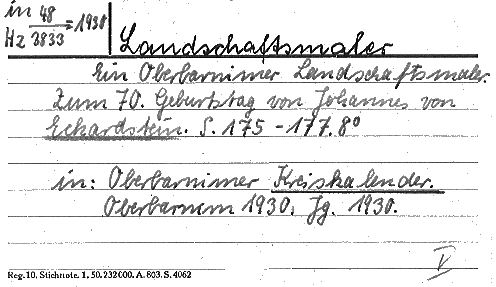 in 48 = 1930
Hz 3833
Landschaftsmaler
Ein Oberbarnimer Landschaftsmaler.
Zum 70. Geburtstag von Johannes von
Eckardstein. S. 175 - 177. 8°
in: Oberbarnimer Kreiskalender.
Oberbarnim 1930. Jg. 1930.
V
Reg. 10. Stichnote. 1, 50. 232 000. A. 803. S. 4062